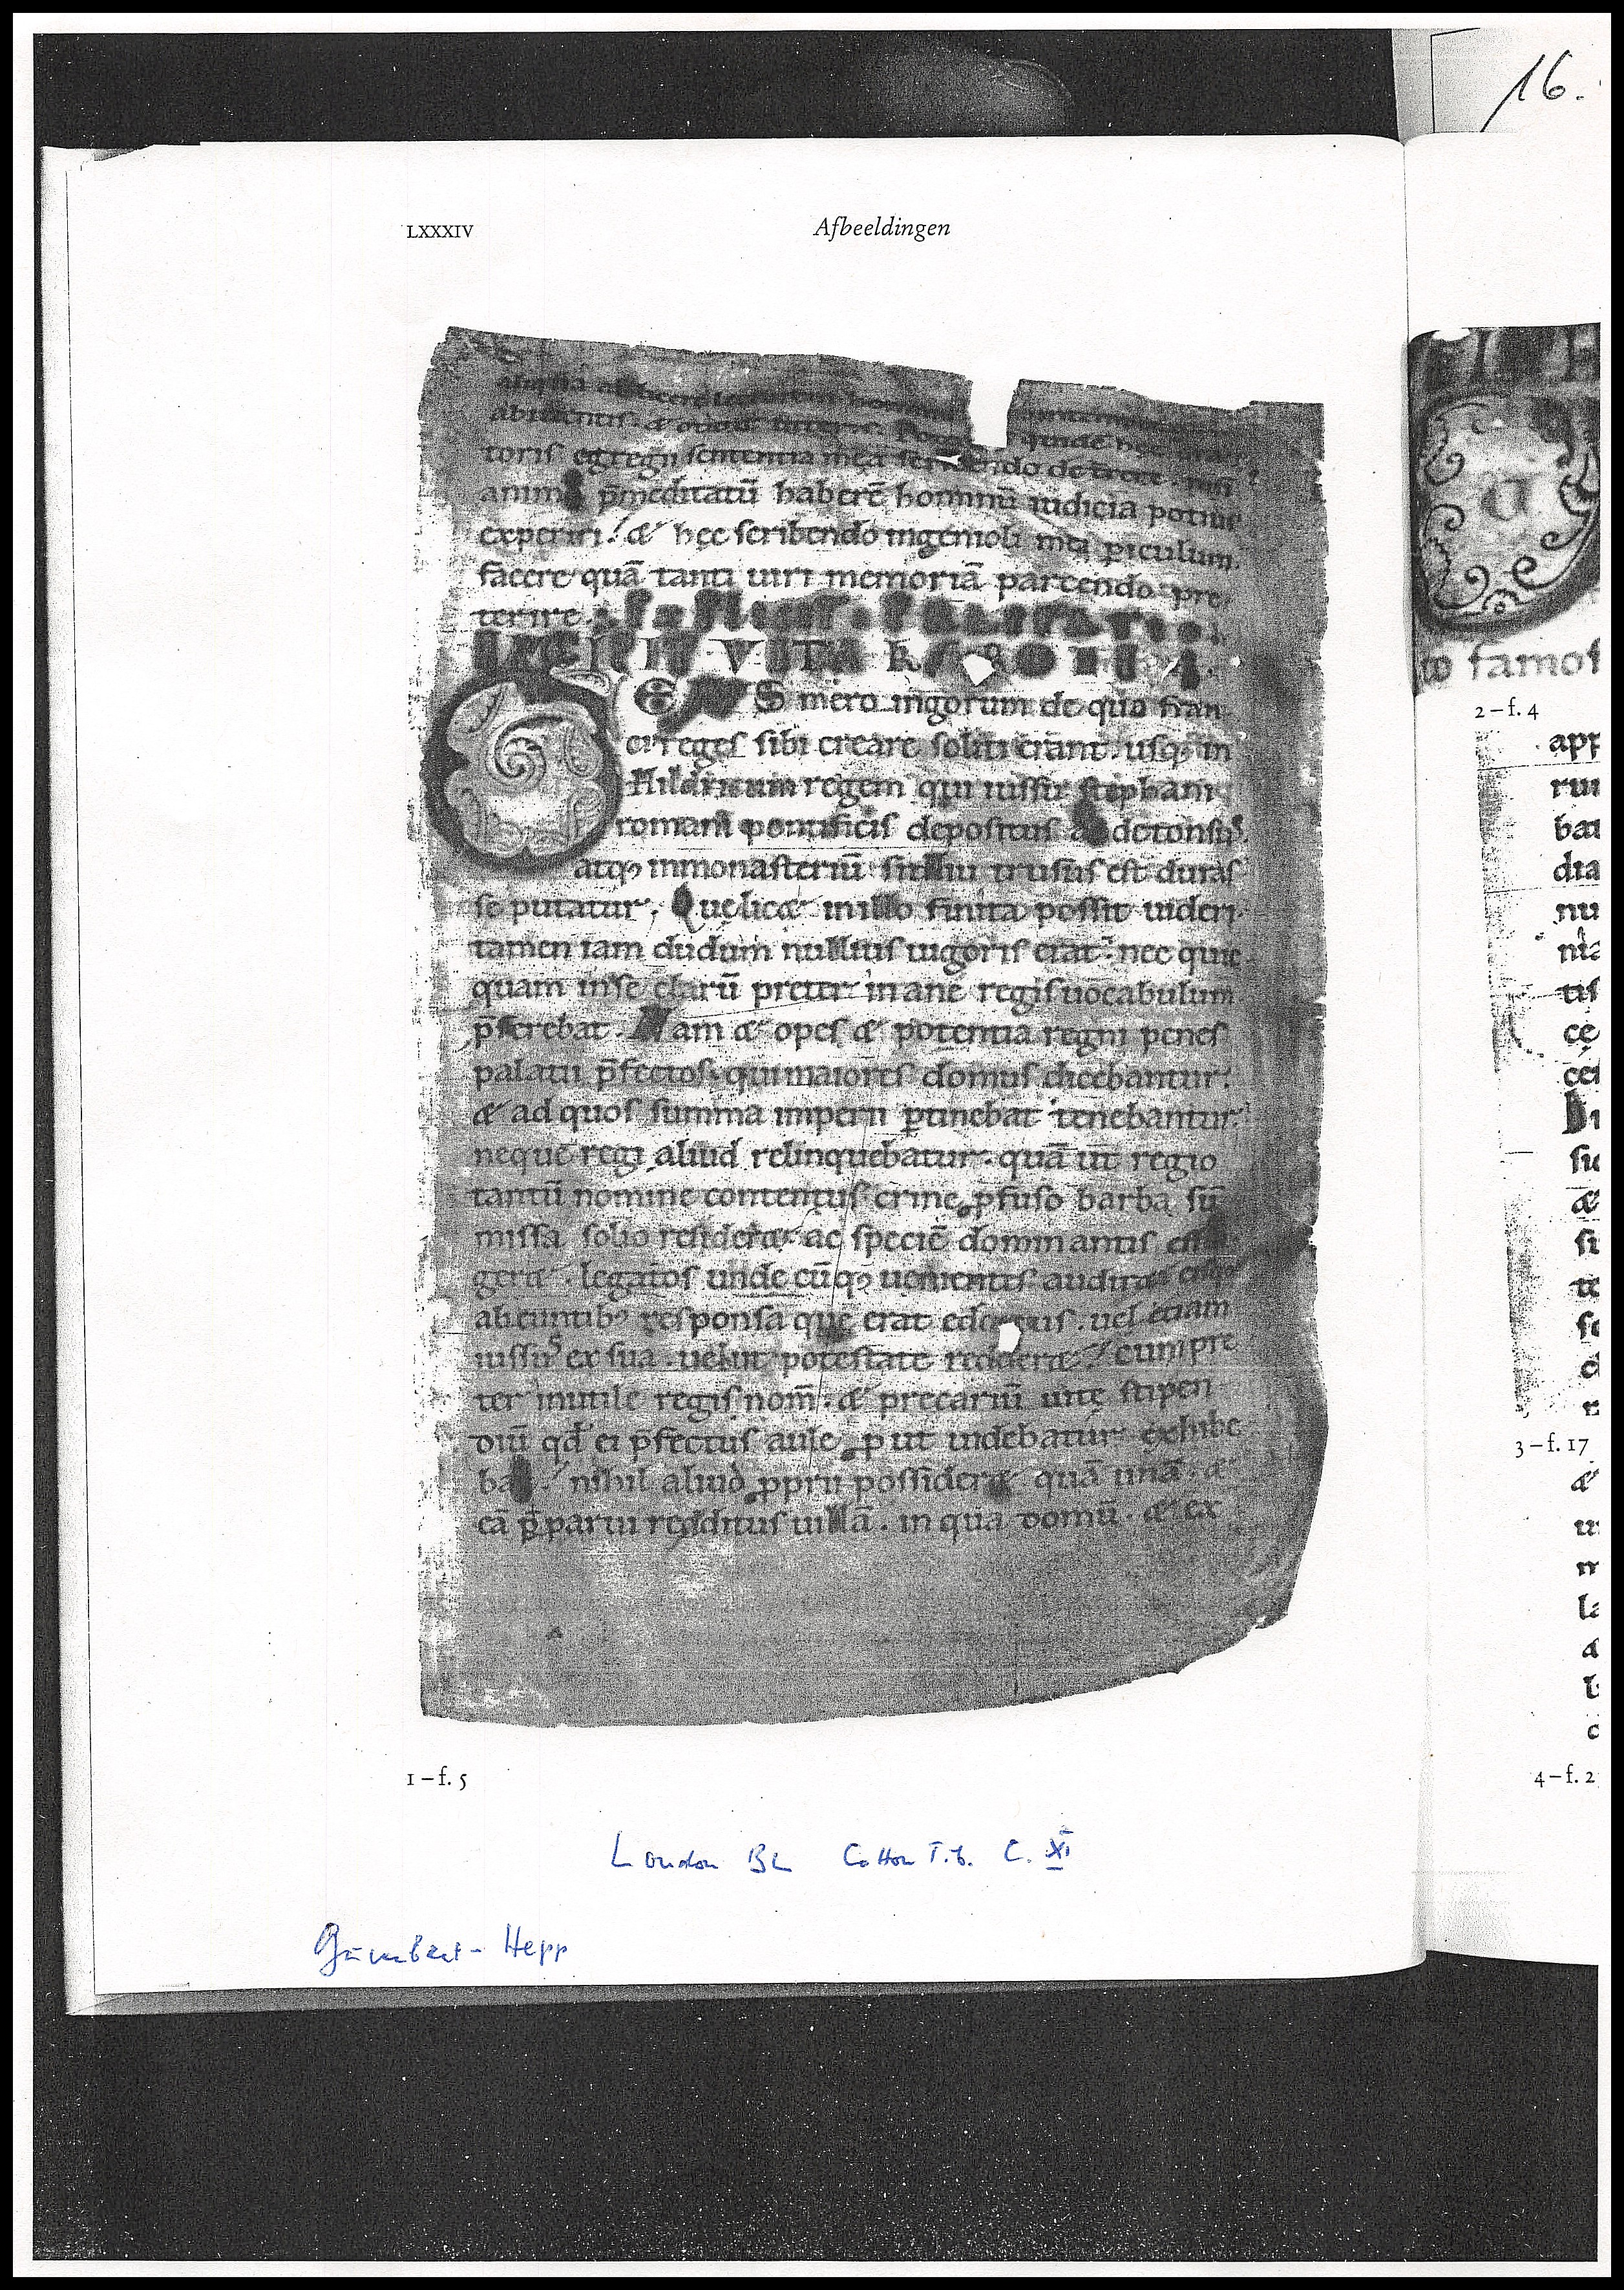 16.
LXXXIV
Afbeeldingen
toris egregii sententia mea scri do
p̄meditatū haberē hominū iudicia potius
experiri. & hęc scribendo ingenioli mei p̱iculum
facere quā tanti uiri memoriā parcendo pre
terire.
VITA
G E S mero ingorum de quo fran
ci reges sibi creare soliti erant. usq; in
hildricum regem qui iussu stephani
romani pontificis depositus detonsus
atq; inmonasteriū trusus est. duras
se putatur. Quęlic& inillo finita possit uideri.
tamen iam dudum nullius uigoris erat. nec quic
quam inse clarū preter inane regis uocabulum
p̄ferebat. Nam & opes & potentia regni penes
palatii p̄fectos. qui maiores domus dicebantur.
& ad quos summa imperii p̱tinebat tenebantur.
neque regi aliud relinquebatur. quā ut regio
tantū nomine contentus crine ꝓfuso barba sū
missa solio resider& ac speciē dominantis eff
ger&. legatos unde cūq; uenientes audir&
abeuntib; responsa quę erat edoctus. uel etiam
iussus ex sua uelut potestate redder&. cum pre
ter inutile regis nom̄. & precariū uitę stipen
diū qd̄ ei p̄fectus aulę ꝓut uidebatur exhibe
ba nihil aliud ꝓprii possider& quā unā. &
eā p̱parui redditus uillā. in qua domū. & ex
1–f. 5
London BL Cotton Tib. C. XI
Gumbert-Hepp
to famos
2–f. 4
app
rui
bat
dia
nu
tis
3–f. 17
4–f. 2